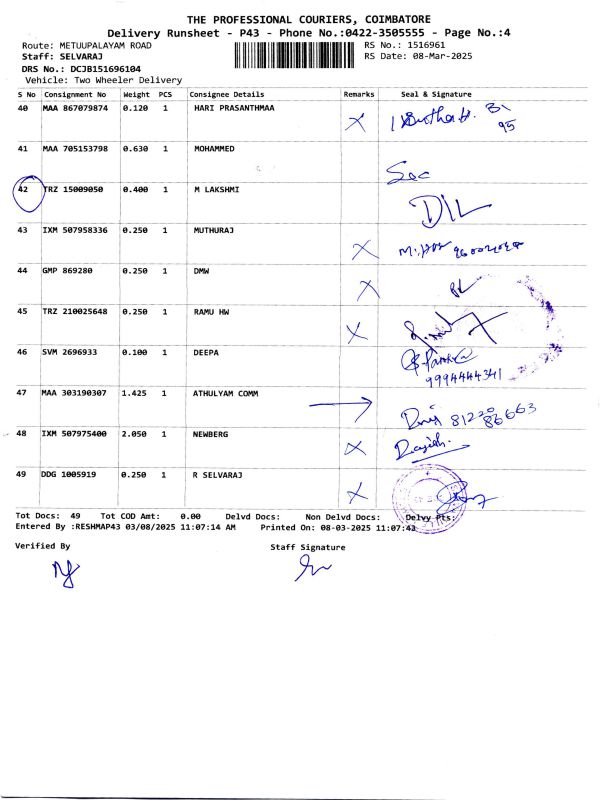 THE PROFESSIONAL COURIERS, COIMBATORE
Delivery Runsheet - P43 - Phone No.:0422-3505555 - Page No.:4
Route: METUUPALAYAM ROAD RS No.: 1516961
Staff: SELVARAJ RS Date: 08-Mar-2025
DRS No.: DCJB151696104
Vehicle: Two Wheeler Delivery
S No Consignment No Weight PCS Consignee Details Remarks Seal & Signature
40 MAA 867079874 0.120 1 HARI PRASANTHMAA
95
41 MAA 705153798 0.630 1 MOHAMMED
Sec
42 TRZ 15009050 0.400 1 M LAKSHMI
43 IXM 507958336 0.250 1 MUTHURAJ
44 GMP 869280 0.250 1 DMW
45 TRZ 210025648 0.250 1 RAMU HW
46 SVM 2696933 0.100 1 DEEPA
9994444341
47 MAA 303190307 1.425 1 ATHULYAM COMM
81220
86663
48 IXM 507975400 2.050 1 NEWBERG
49 DDG 1005919 0.250 1 R SELVARAJ
Tot Docs: 49 Tot COD Amt: 0.00 Delvd Docs: Non Delvd Docs: Delvy Pts:
Entered By :RESHMAP43 03/08/2025 11:07:14 AM Printed On: 08-03-2025 11:07:43
Verified By Staff Signature